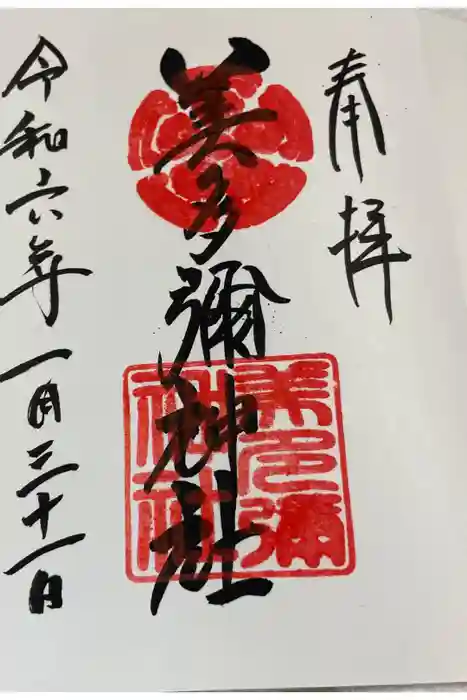 奉拝
美多彌神社
美多彌
神社
令和六年一月三十一日